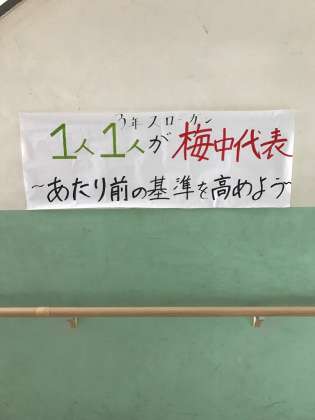 3年スローガン
1人1人が梅中代表
～あたり前の基準を高めよう～